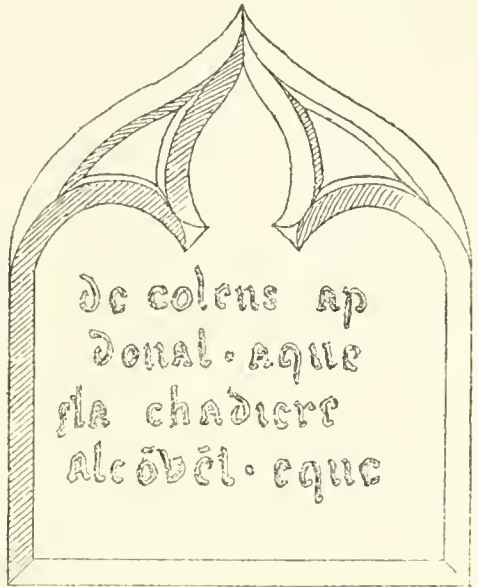 de colens ap
donal · aque
sta chadiere
al cōvēt · eque